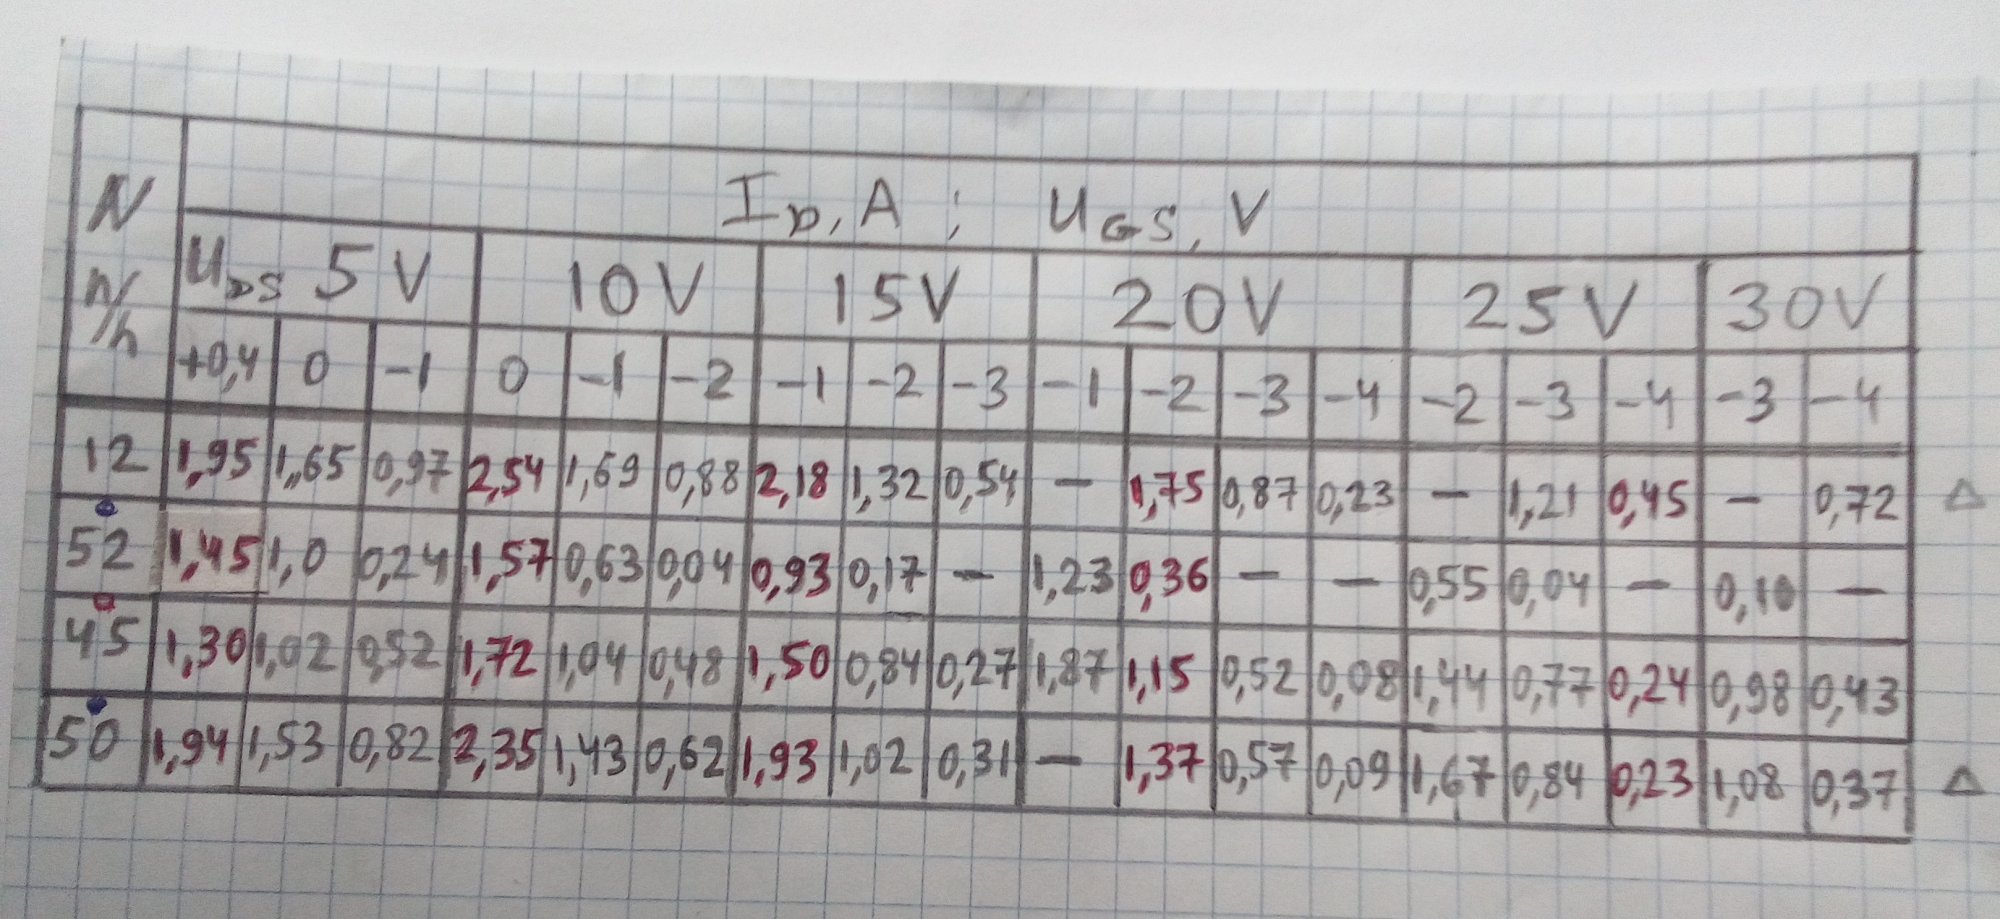 N n/n I_D, A ; U_GS, V
U_DS 5V 10V 15V 20V 25V 30V
+0,4 0 -1 0 -1 -2 -1 -2 -3 -1 -2 -3 -4 -2 -3 -4 -3 -4
12 1,95 1,65 0,97 2,54 1,69 0,88 2,18 1,32 0,54 — 1,75 0,87 0,23 — 1,21 0,45 — 0,72 Δ
52 1,45 1,0 0,24 1,57 0,63 0,04 0,93 0,17 — 1,23 0,36 — — 0,55 0,04 — 0,10 —
45 1,30 1,02 0,52 1,72 1,04 0,48 1,50 0,84 0,27 1,87 1,15 0,52 0,08 1,44 0,77 0,24 0,98 0,43
50 1,94 1,53 0,82 2,35 1,43 0,62 1,93 1,02 0,31 — 1,37 0,57 0,09 1,67 0,84 0,23 1,08 0,37 Δ